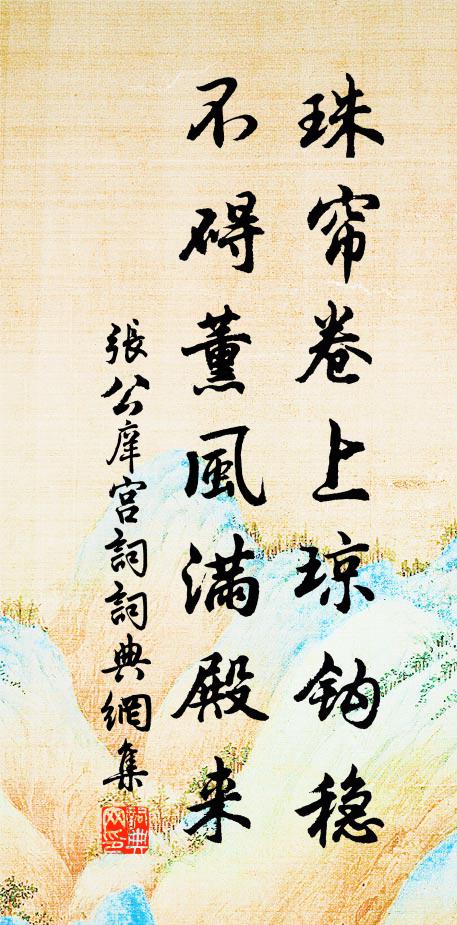 珠帘卷上琼钩稳
不碍薰風满殿来
張公庠宫詞詞典網集
詞典网印